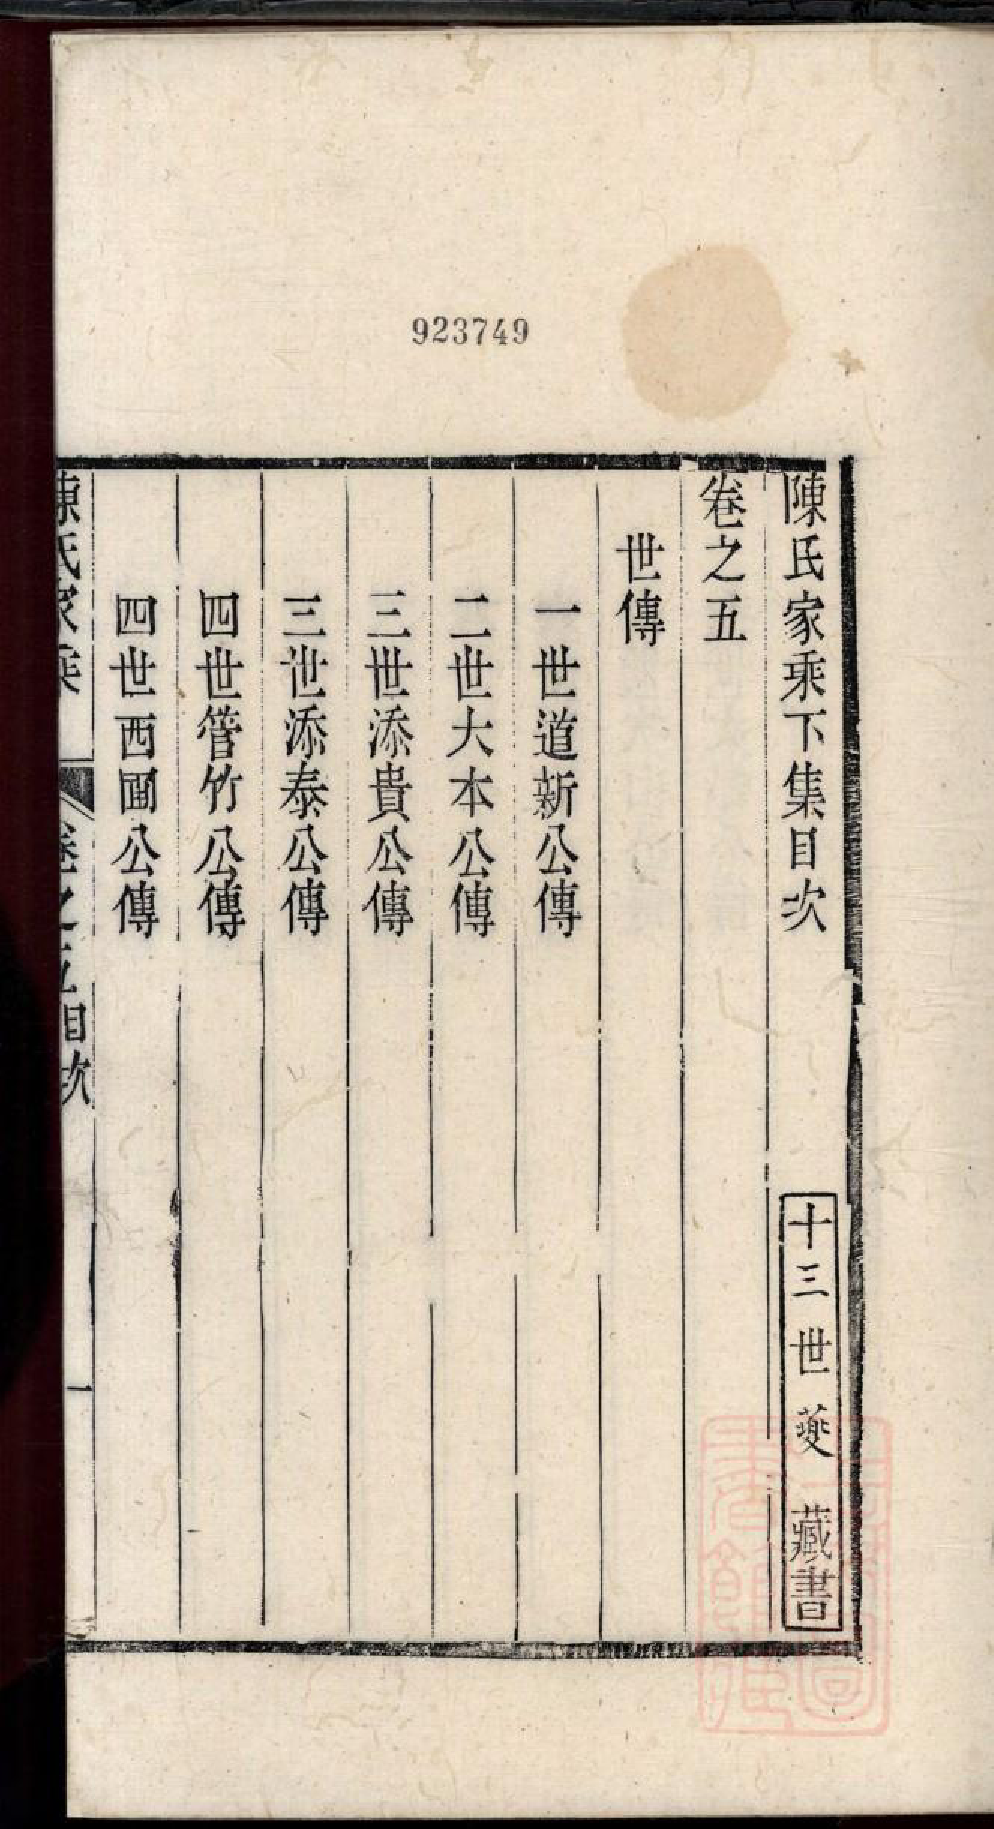 923749
陳氏家乘下集目次
十三世燮藏書
卷之五
世傳
一世道新公傳
二世大本公傳
三世添貴公傳
三世添泰公傳
四世管竹公傳
四世西圃公傳
陳氏家乘
卷之五目次
一